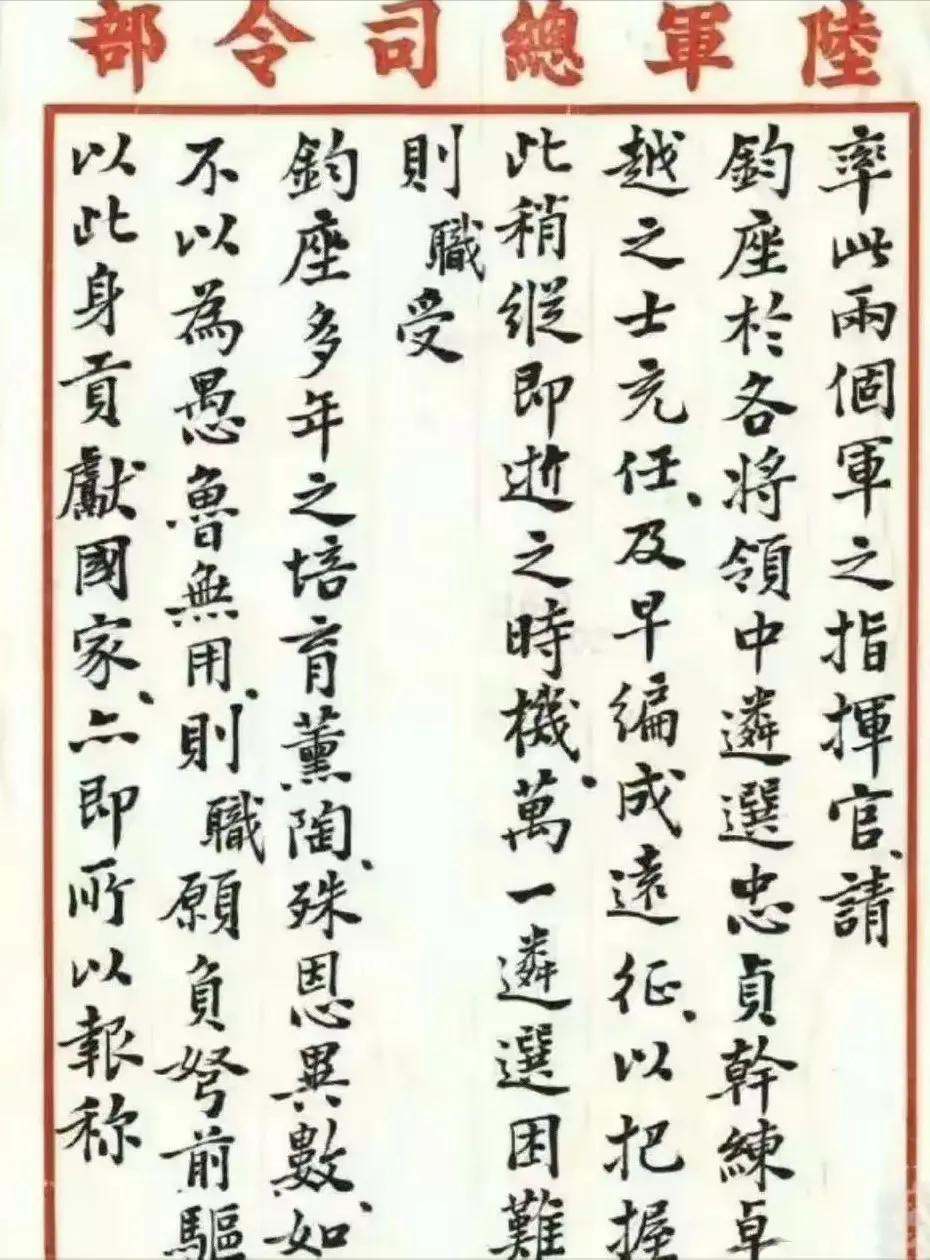 陸軍總司令部
率此兩個軍之指揮官、請
鈞座於各將領中遴選忠貞幹練卓
越之士充任、及早編成遠征、以把握
此稍縱即逝之時機、萬一遴選困難
則職受
鈞座多年之培育薰陶、殊恩異數、如
不以為愚魯無用、則職願負弩前驅
以此身貢獻國家、亦即所以報称